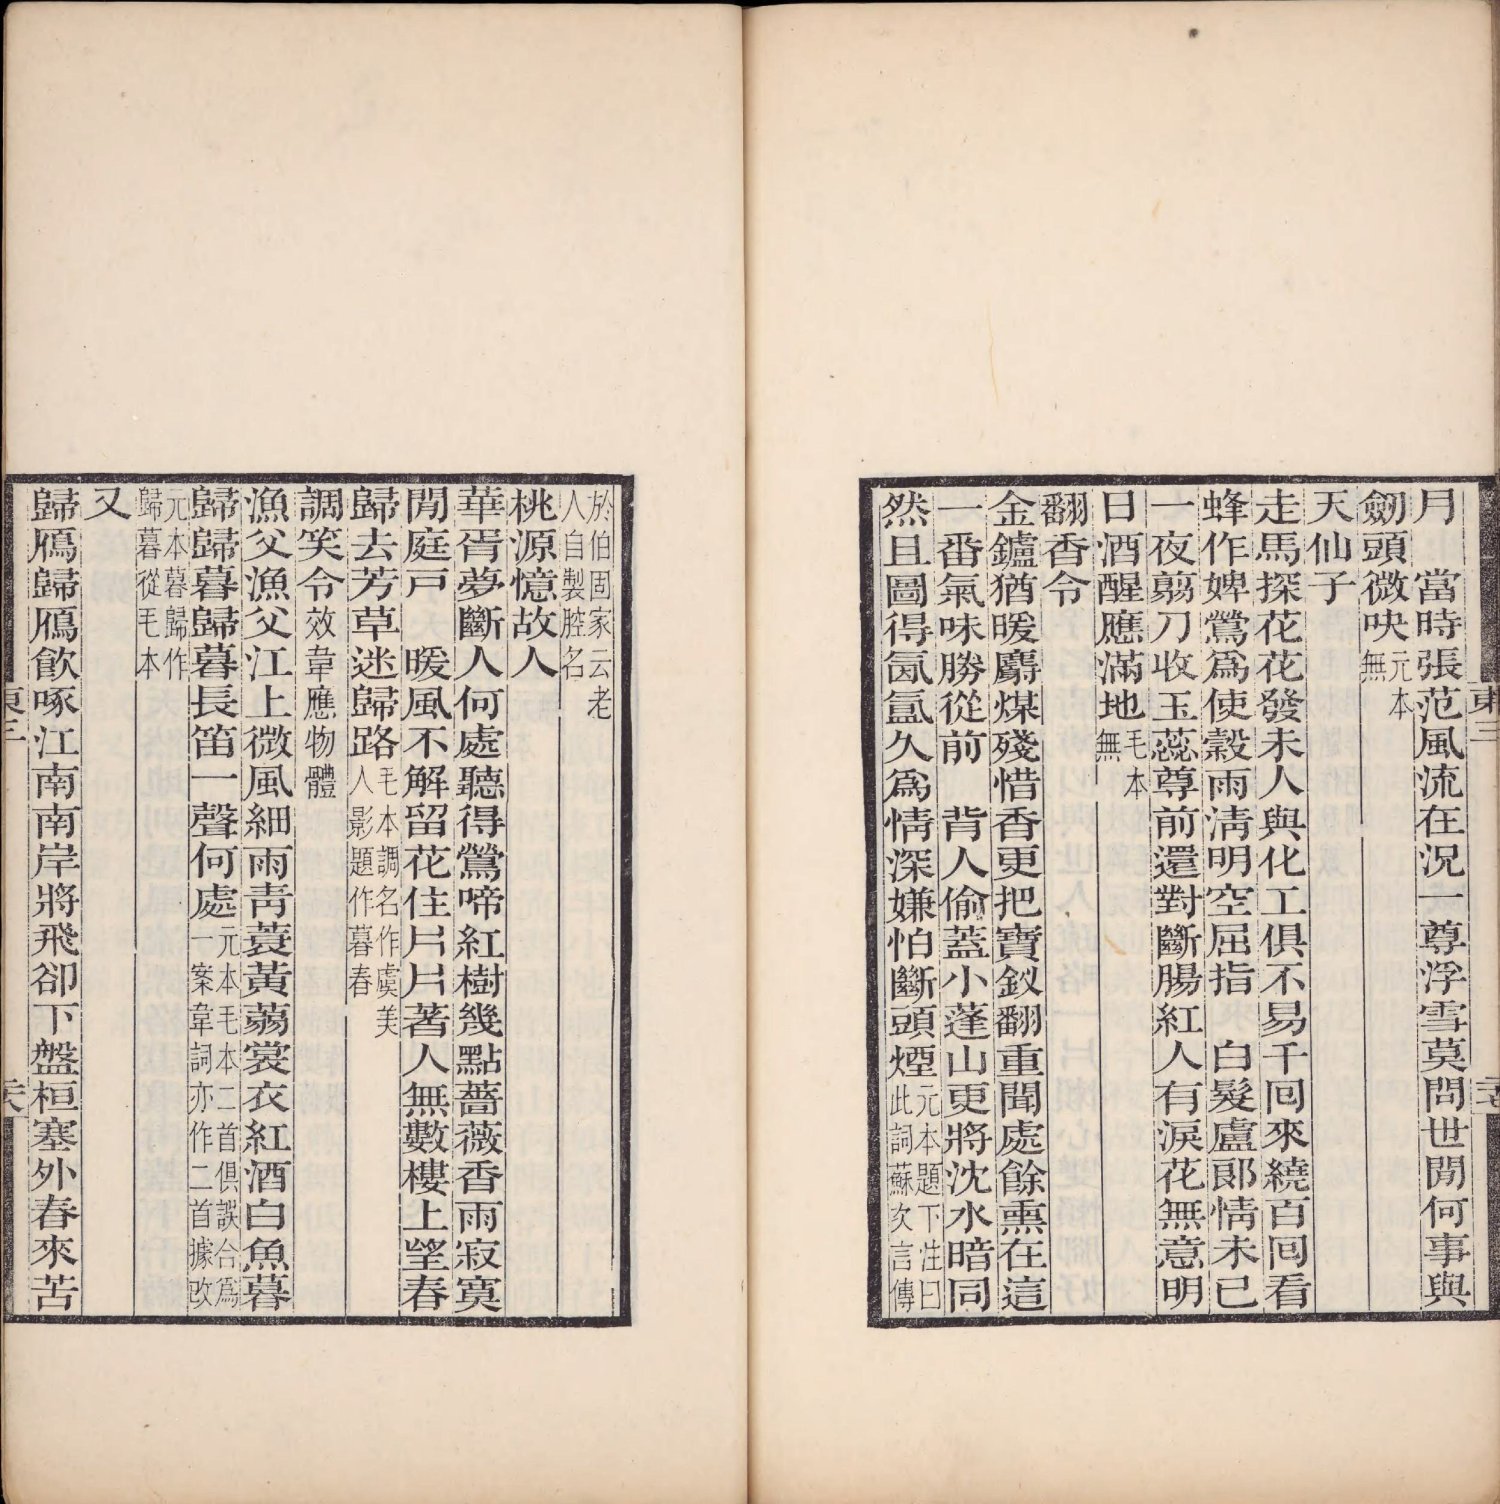 月　當時張范風流在況一尊浮雪莫問世閒何事與
劒頭微吷元本無
天仙子
走馬探花花發未人與化工俱不易千回來繞百回看
蜂作婢鶯爲使穀雨淸明空屈指　白髮盧郞情未已
一夜翦刀收玉蕊尊前還對斷腸紅人有淚花無意明
日酒醒應滿地毛本無
翻香令
金鑪猶暖麝煤殘惜香更把寶釵翻重聞處餘熏在這
一番氣味勝從前　背人偷蓋小蓬山更將沈水暗同
然且圖得氤氳久爲情深嫌怕斷頭煙元本題下注曰此詞蘇次言傳
於伯固家云老人自製腔名
桃源憶故人
華胥夢斷人何處聽得鶯啼紅樹幾點薔薇香雨寂寞
閒庭戸　暖風不解留花住片片著人無數樓上望春
歸去芳草迷歸路毛本調名作虞美人影題作暮春
調笑令效韋應物體
漁父漁父江上微風細雨靑蓑黃蒻裳衣紅酒白魚暮
歸歸暮歸暮長笛一聲何處元本毛本二首俱誤合爲一案韋詞亦作二首據改
元本暮歸作歸暮從毛本
又
歸鴈歸鴈飮啄江南南岸將飛卻下盤桓塞外春來苦
東三